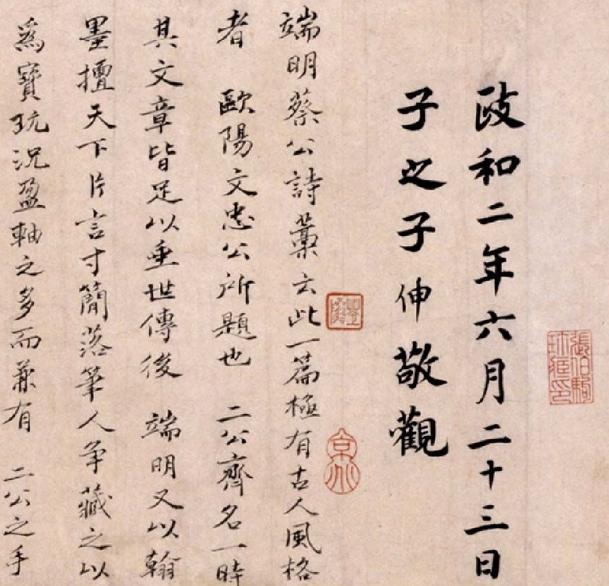 張伯駒
珍藏印
政和二年六月二十三日
子之子伸敬觀
端明蔡公詩藁云此一篇極有古人風格
者 歐陽文忠公所題也 二公齊名一時
其文章皆足以垂世傳後 端明又以翰
墨擅天下片言寸簡落筆人争藏之以
爲寶玩況盈軸之多而兼有 二公之手